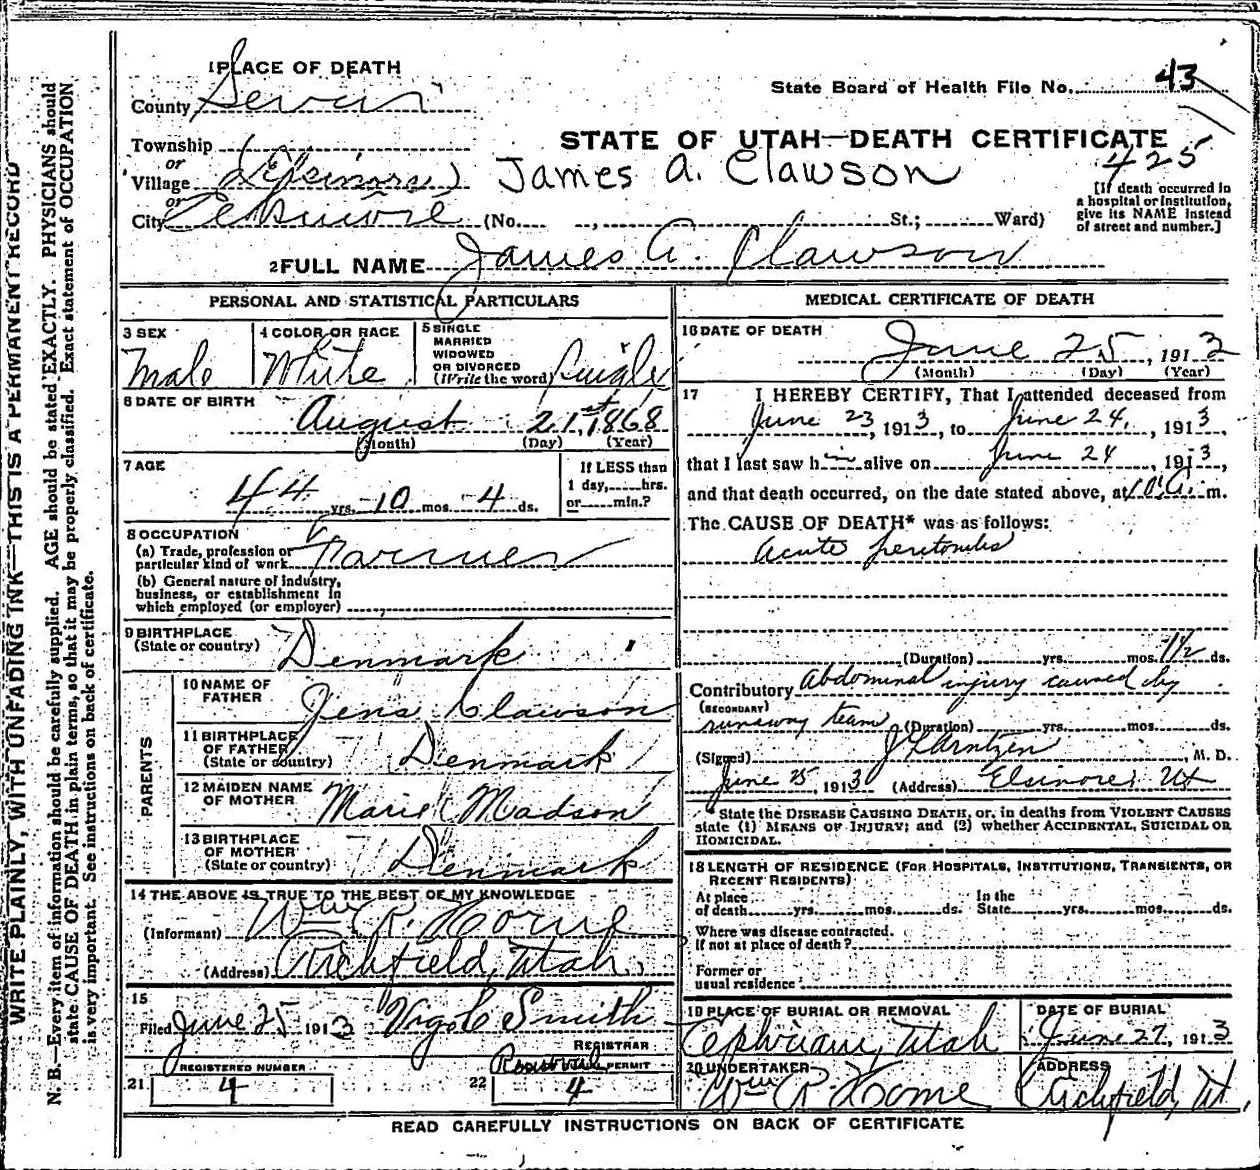 1 PLACE OF DEATH
County Sevier
State Board of Health File No. 43
STATE OF UTAH—DEATH CERTIFICATE
425
Township
or
Village (Elsinore)
James A. Clawson
or
City Elsinore (No. , St.; Ward)
[If death occurred in
a hospital or institution,
give its NAME instead
of street and number.]
2 FULL NAME James A. Clawson
PERSONAL AND STATISTICAL PARTICULARS
3 SEX
Male
4 COLOR OR RACE
White
5 SINGLE
MARRIED
WIDOWED
OR DIVORCED
(Write the word) Single
6 DATE OF BIRTH
August 21st, 1868
(Month) (Day) (Year)
7 AGE
44 yrs. 10 mos. 4 ds.
If LESS than
1 day, hrs.
or min.?
8 OCCUPATION
(a) Trade, profession or
particular kind of work Farmer
(b) General nature of industry,
business, or establishment in
which employed (or employer)
9 BIRTHPLACE
(State or country) Denmark
PARENTS
10 NAME OF
FATHER Jens Clawson
11 BIRTHPLACE
OF FATHER
(State or country) Denmark
12 MAIDEN NAME
OF MOTHER Marie Madson
13 BIRTHPLACE
OF MOTHER
(State or country) Denmark
14 THE ABOVE IS TRUE TO THE BEST OF MY KNOWLEDGE
(Informant) Wm R. Horne
(Address) Richfield, Utah,
15
Filed June 25 1913 Smith
REGISTRAR
REGISTERED NUMBER
21 4
PERMIT
22 4
MEDICAL CERTIFICATE OF DEATH
16 DATE OF DEATH
June 25, 1913
(Month) (Day) (Year)
17 I HEREBY CERTIFY, That I attended deceased from
June 23, 1913, to June 24, 1913
that I last saw h im alive on June 24, 1913,
and that death occurred, on the date stated above, at A. m.
The CAUSE OF DEATH* was as follows:
Acute peritonitis
(Duration) yrs. mos. 1 1/2 ds.
Contributory Abdominal injury caused by
(SECONDARY)
runaway team (Duration) yrs. mos. ds.
(Signed) Arntzen, M. D.
June 25, 1913 (Address) Elsinore, Ut
* State the DISEASE CAUSING DEATH, or, in deaths from VIOLENT CAUSES
state (1) MEANS OF INJURY; and (2) whether ACCIDENTAL, SUICIDAL OR
HOMICIDAL.
18 LENGTH OF RESIDENCE (FOR HOSPITALS, INSTITUTIONS, TRANSIENTS, OR
RECENT RESIDENTS)
At place
of death yrs. mos. ds.
In the
State yrs. mos. ds.
Where was disease contracted.
If not at place of death?
Former or
usual residence
19 PLACE OF BURIAL OR REMOVAL
Ephriam, Utah
DATE OF BURIAL
June 27, 1913
20 UNDERTAKER
Wm R. Horne
ADDRESS
Richfield, Ut.
READ CAREFULLY INSTRUCTIONS ON BACK OF CERTIFICATE
WRITE PLAINLY, WITH UNFADING INK—THIS IS A PERMANENT RECORD
N. B.—Every item of information should be carefully supplied. AGE should be stated EXACTLY. PHYSICIANS should
state CAUSE OF DEATH in plain terms, so that it may be properly classified. Exact statement of OCCUPATION
is very important. See instructions on back of certificate.